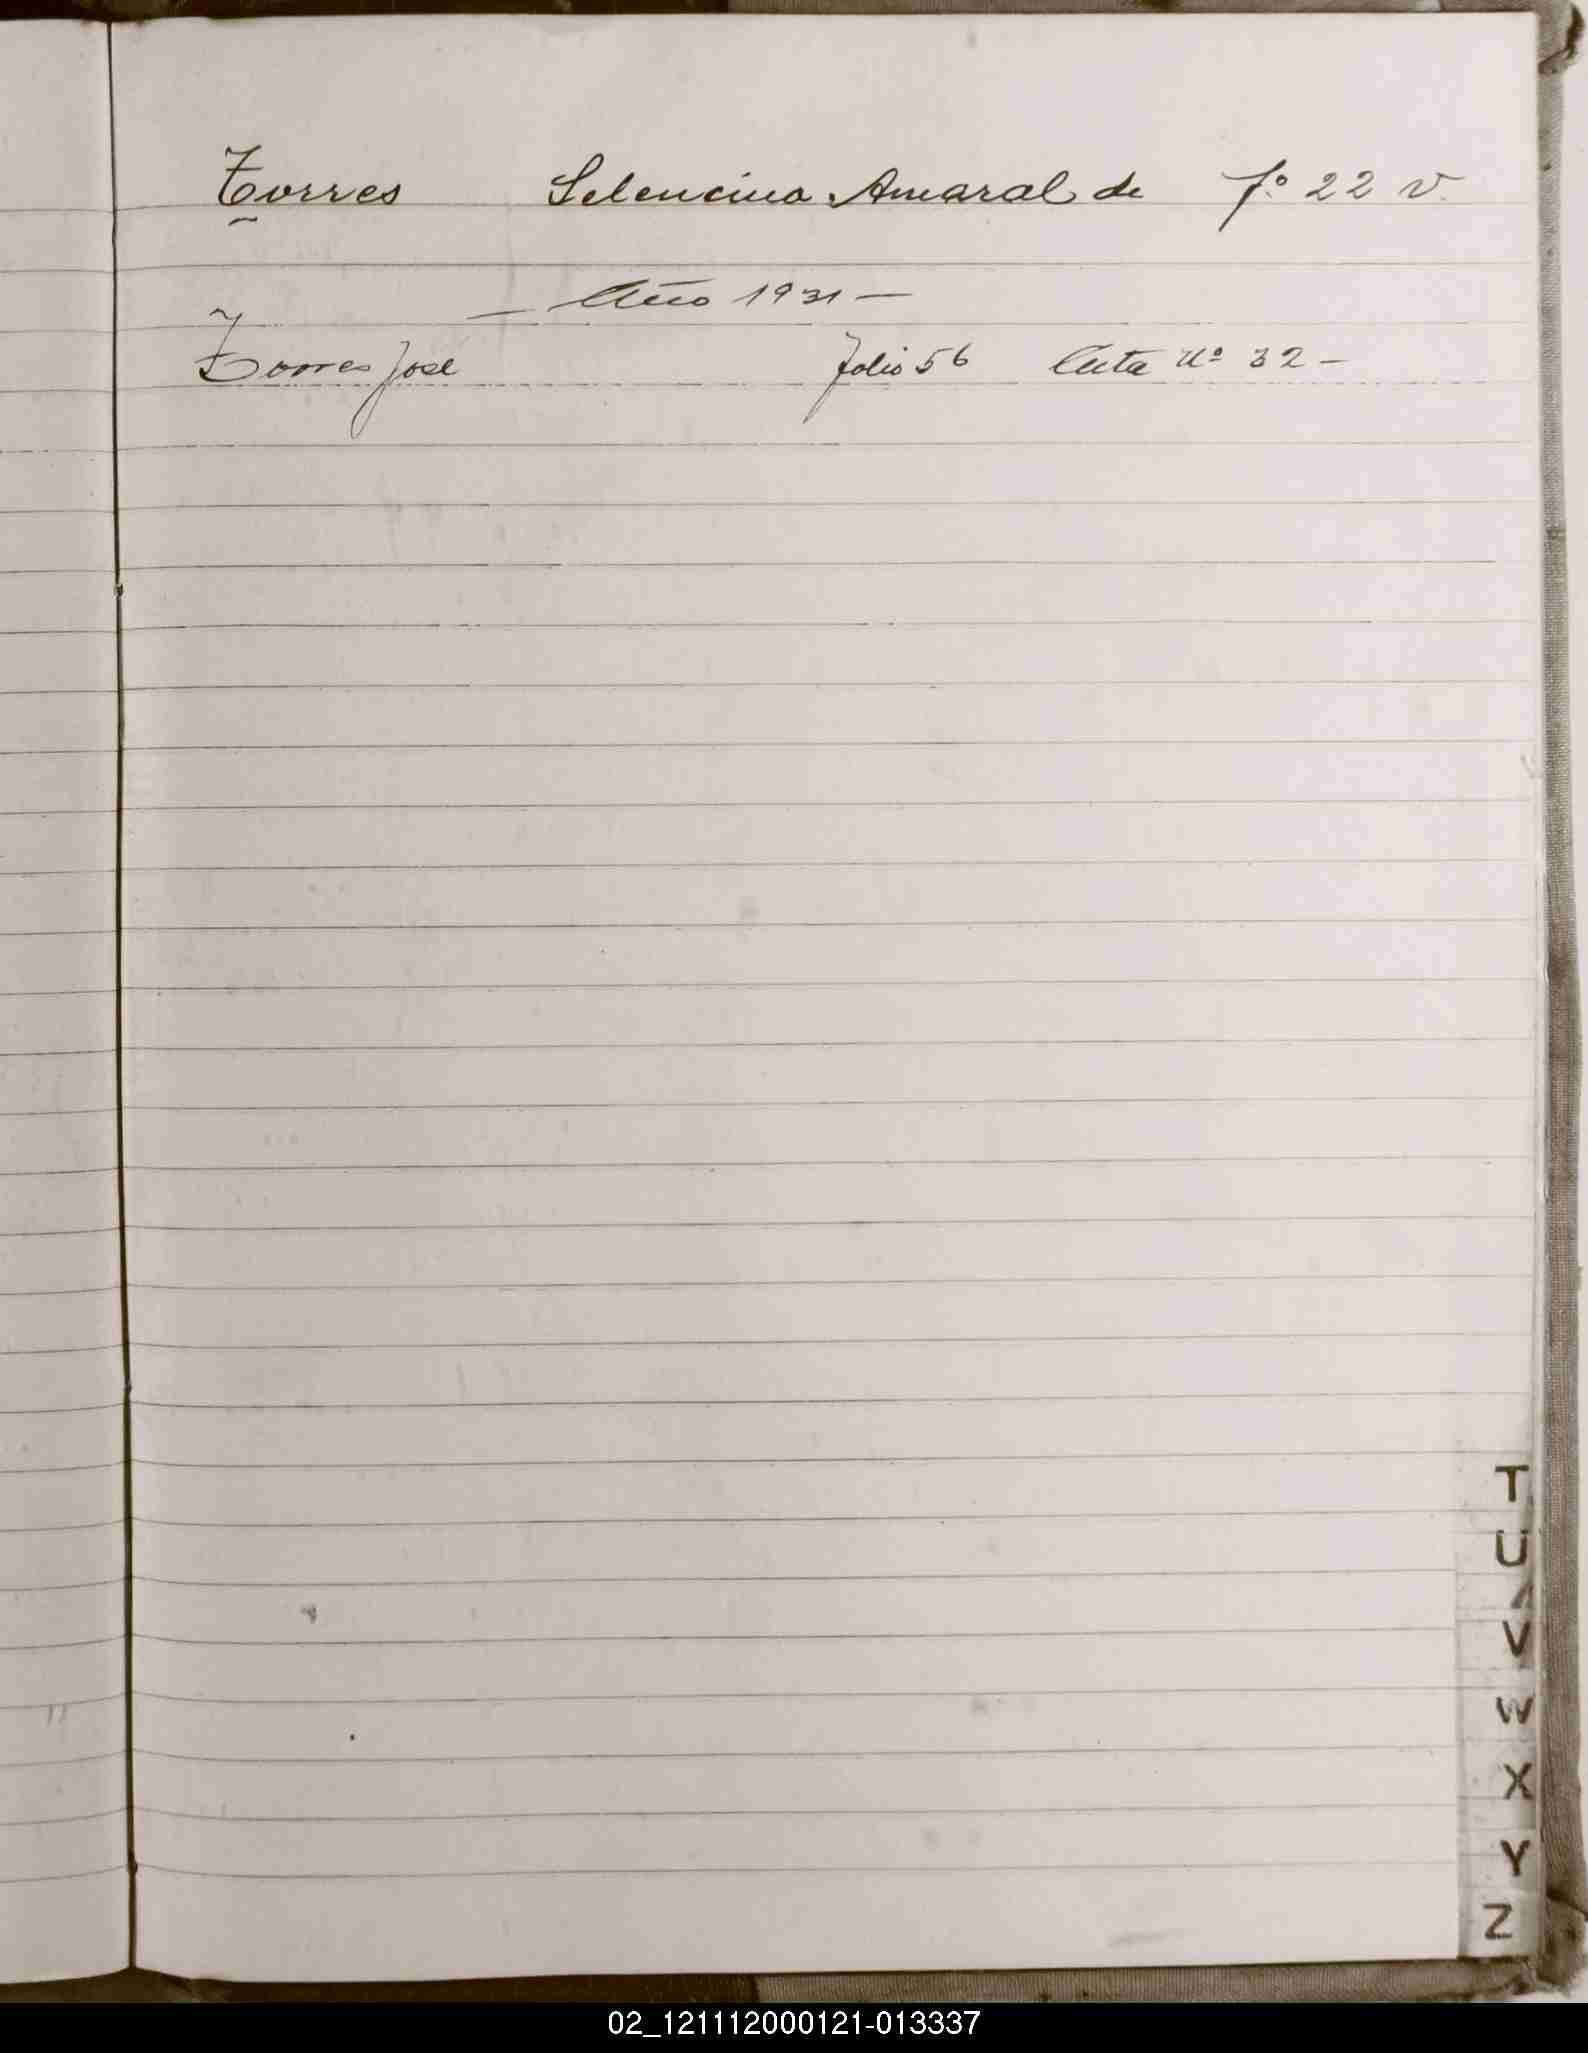 Torres Selencina Amaral de fº 22 v.
— Año 1931 —
Torres José folio 56 Acta Nº 32 —
T
U
V
W
X
Y
Z
02_121112000121-013337